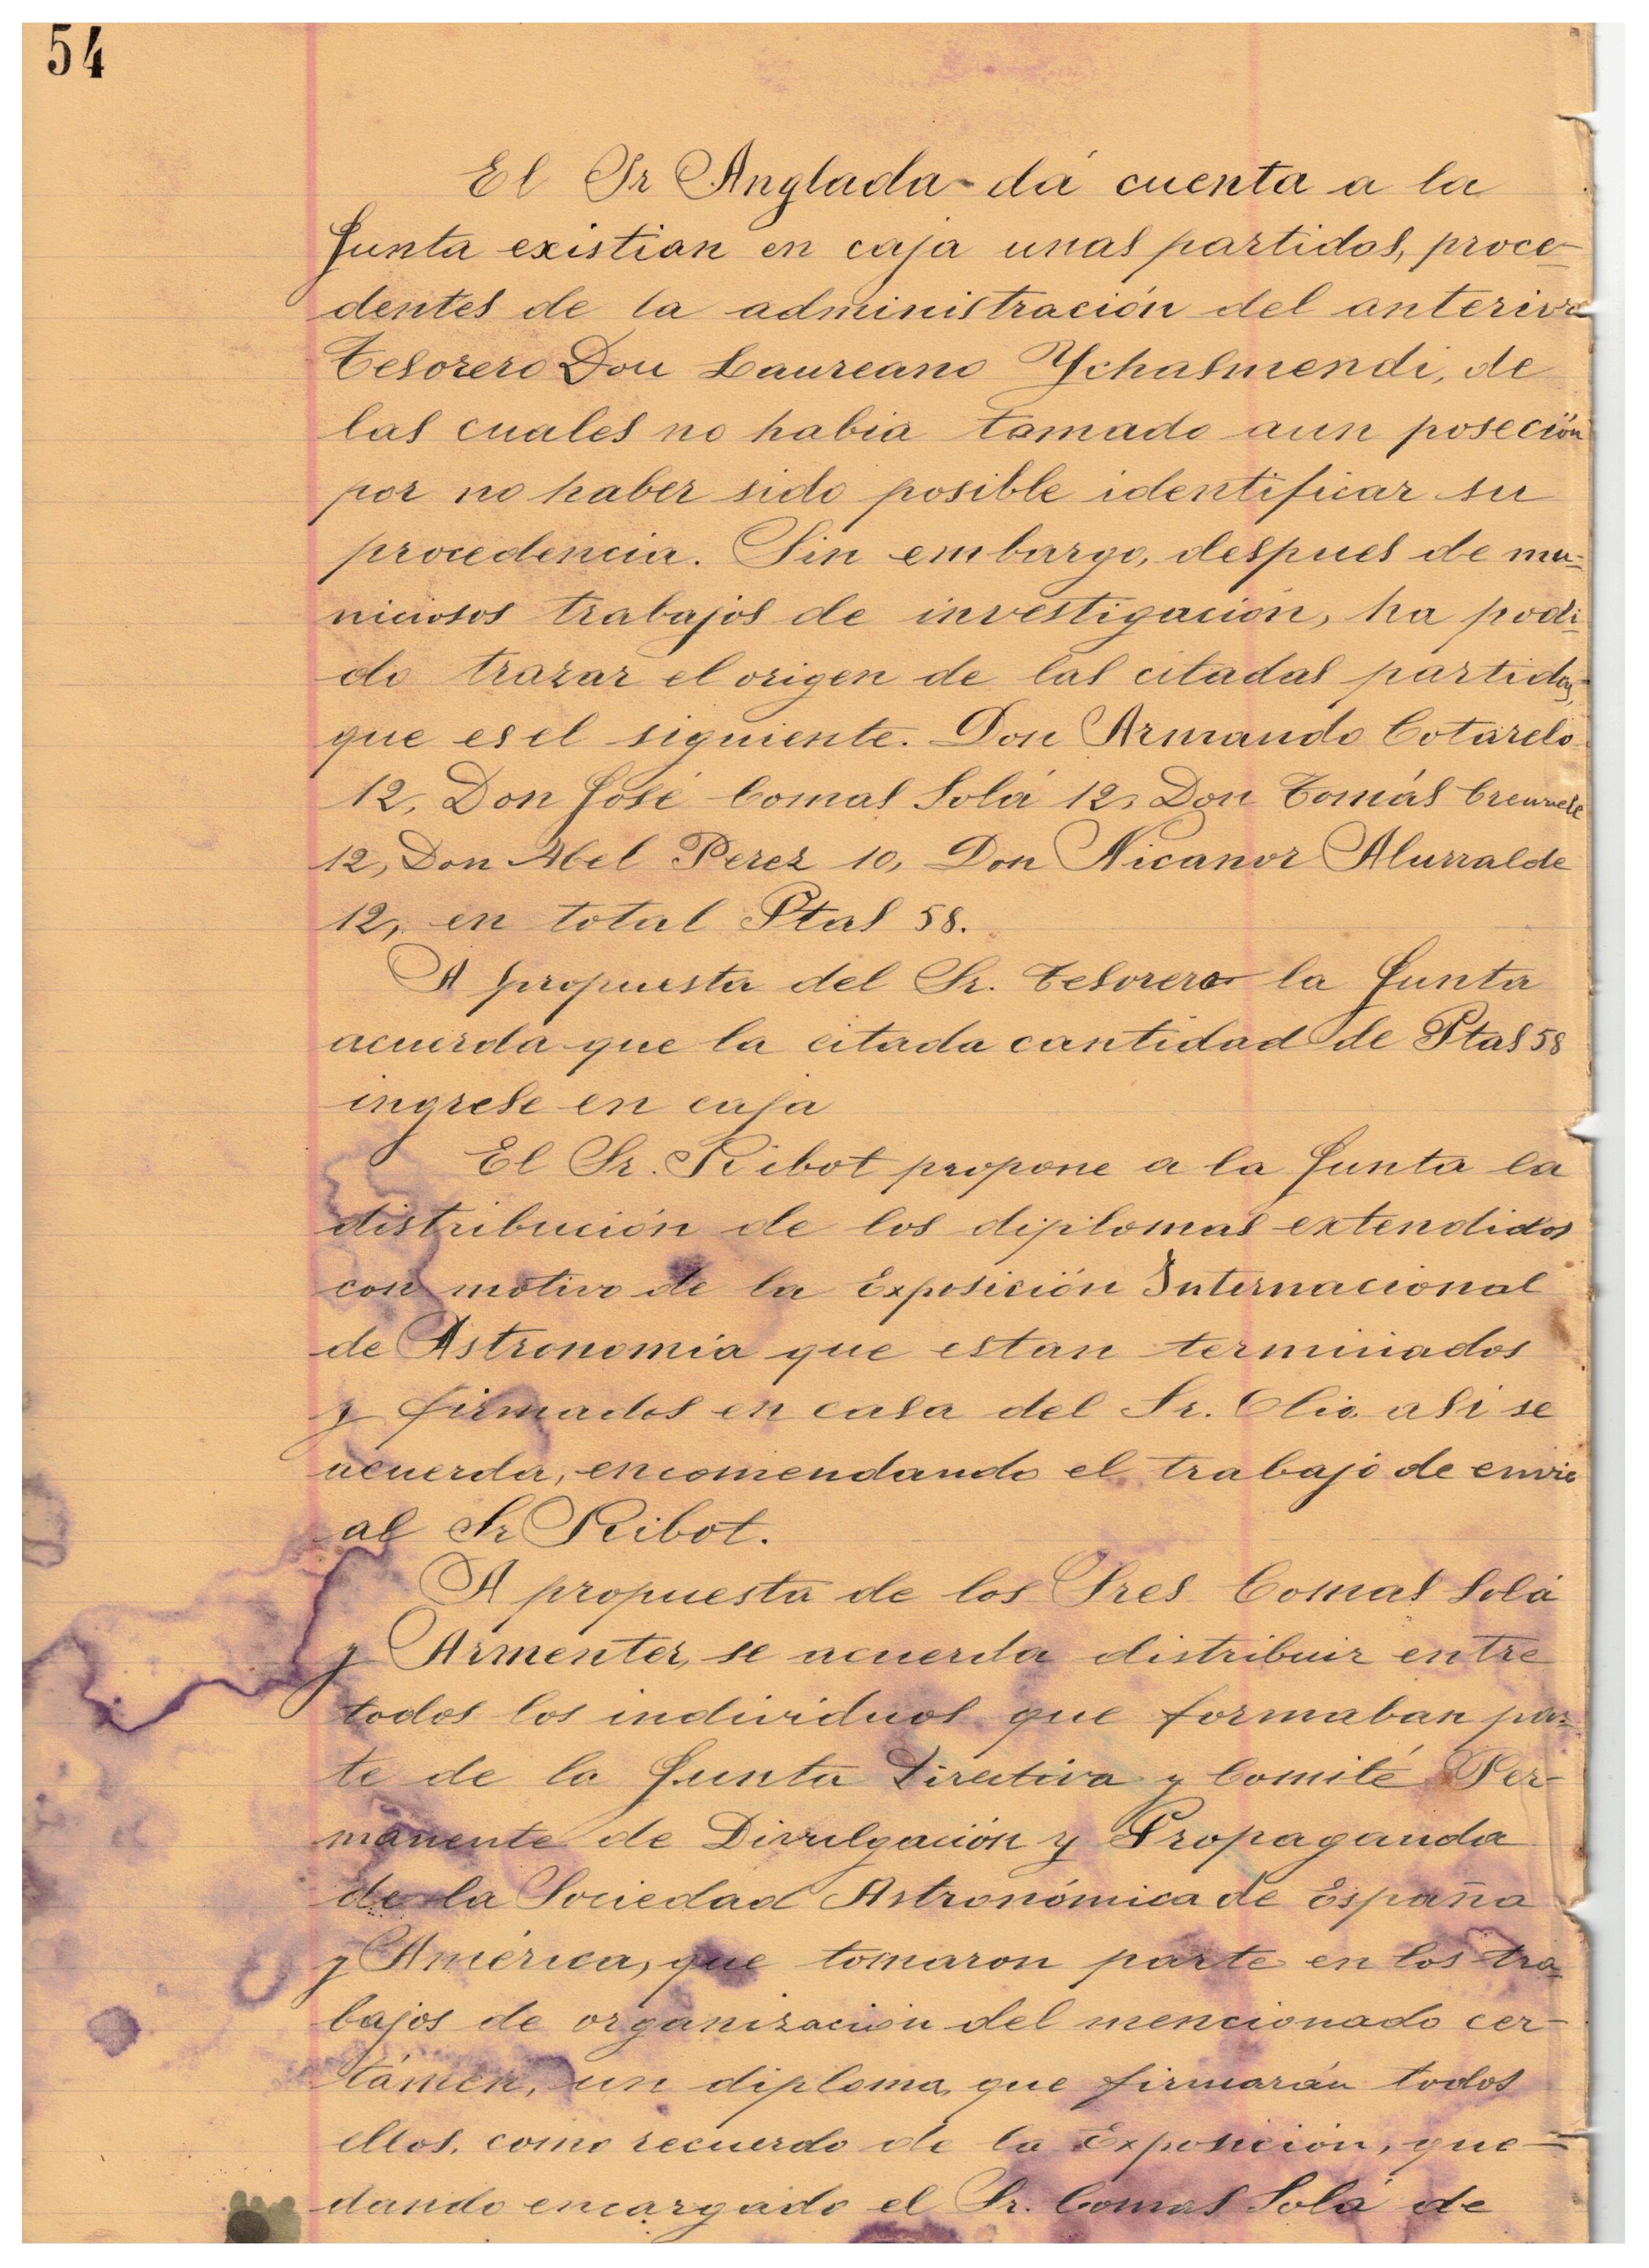 54
El Sr Anglada dá cuenta a la
Junta existian en caja unas partidas, proce-
dentes de la administración del anterior
Tesorero Don Laureano Ychasmendi, de
las cuales no habia tomado aun poseción
por no haber sido posible identificar su
procedencia. Sin embargo, despues de mu-
niciosos trabajos de investigación, ha podi-
do trazar el origen de las citadas partidas,
que es el siguiente. Don Armando Cotarelo
12, Don José Comas Solá 12, Don Tomás
12, Don Abel Perez 10, Don Nicanor Alurralde
12, en total Ptas 58.
A propuesta del Sr. Tesorero la Junta
acuerda que la citada cantidad de Ptas 58
ingrese en caja
El Sr. Ribot propone a la Junta la
distribución de los diplomas extendidos
con motivo de la Exposición Internacional
de Astronomía que estan terminados
y firmados en casa del Sr. Elio. asi se
acuerda, encomendando el trabajo de envio
al Sr Ribot.
A propuesta de los Sres Comas Solá
y Armenter, se acuerda distribuir entre
todos los individuos que formaban par-
te de la Junta Directiva y Comité Per-
manente de Divulgación y Propaganda
de la Sociedad Astronómica de España
y América, que tomaron parte en los tra-
bajos de organización del mencionado cer-
támen, un diploma, que firmarán todos
ellos, como recuerdo de la Exposición, que-
dando encargado el Sr. Comas Solá de